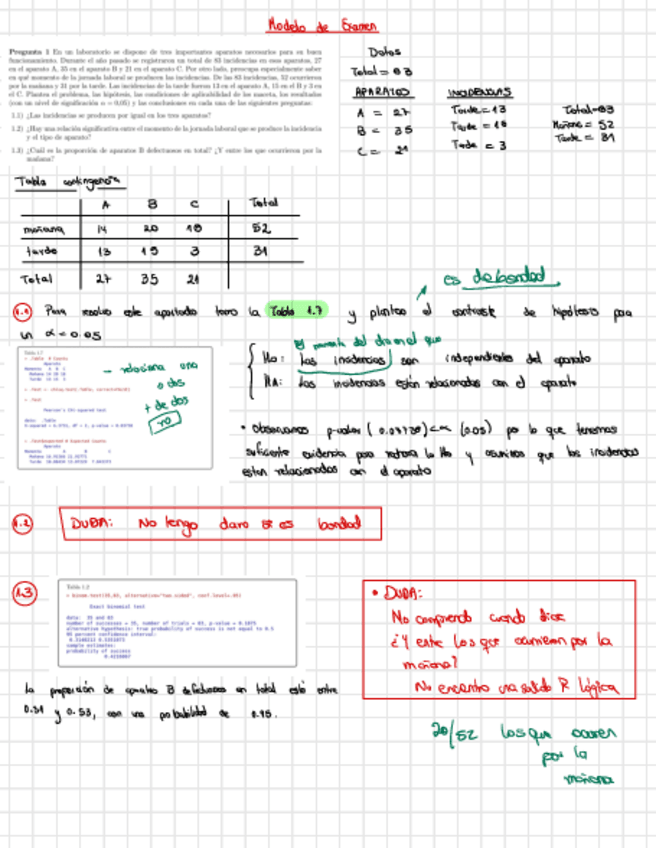 Modelo de Examen
Pregunta 1 En un laboratorio se dispone de tres importantes aparatos necesarios para su buen
funcionamiento. Durante el año pasado se registraron un total de 83 incidencias en esos aparatos, 27
en el aparato A, 35 en el aparato B y 21 en el aparato C. Por otro lado, preocupa especialmente saber
en qué momento de la jornada laboral se producen las incidencias. De las 83 incidencias, 52 ocurrieron
por la mañana y 31 por la tarde. Las incidencias de la tarde fueron 13 en el aparato A, 15 en el B y 3 en
el C. Plantea el problema, las hipótesis, las condiciones de aplicabilidad de los mismos, los resultados
(con un nivel de significación α = 0,05) y las conclusiones en cada una de las siguientes preguntas:
1.1) ¿Las incidencias se producen por igual en los tres aparatos?
1.2) ¿Hay una relación significativa entre el momento de la jornada laboral que se produce la incidencia
y el tipo de aparato?
1.3) ¿Cuál es la proporción de aparatos B defectuosos en total? ¿Y entre los que ocurrieron por la
mañana?
Datos
Total = 83
APARATOS INCIDENCIAS
A = 27 Tarde = 13 Total = 83
B = 35 Tarde = 15 Mañana = 52
C = 21 Tarde = 3 Tarde = 31
Tabla contingencia
A B C Total
mañana 14 20 18 52
tarde 13 15 3 31
Total 27 35 21
es de bondad
1.1 Para resolver este apartado tomo la Tabla 1.7 y planteo el contraste de hipótesis para
un α = 0.05
El momento del dia en el que
Ho: las incidencias son independientes del aparato
HA: las incidencias están relacionadas con el aparato
- relaciona una
o dos
+ de dos
no
Pearson's Chi-squared test
• Observamos p-valor < α (0.05) por lo que tenemos
suficiente evidencia para rechazar la Ho y asumimos que las incidencias
estan relacionadas con el aparato
1.2 DUDA: No tengo claro si es bondad
1.3 Tabla 1.2
> binom.test(35,83, alternative="two.sided", conf.level=.95)
Exact binomial test
data: 35 and 83
number of successes = 35, number of trials = 83, p-value = 0.1875
alternative hypothesis: true probability of success is not equal to 0.5
95 percent confidence interval:
sample estimates:
probability of success
la proporción de aparatos B defectuosos en total está entre
0.31 y 0.53, con una probabilidad de 0.95.
• DUDA:
No comprendo cuando dice
¿Y entre los que ocurrieron por la
mañana?
No encuentro una salida R lógica
20/52 los que ocurren
por la
mañana